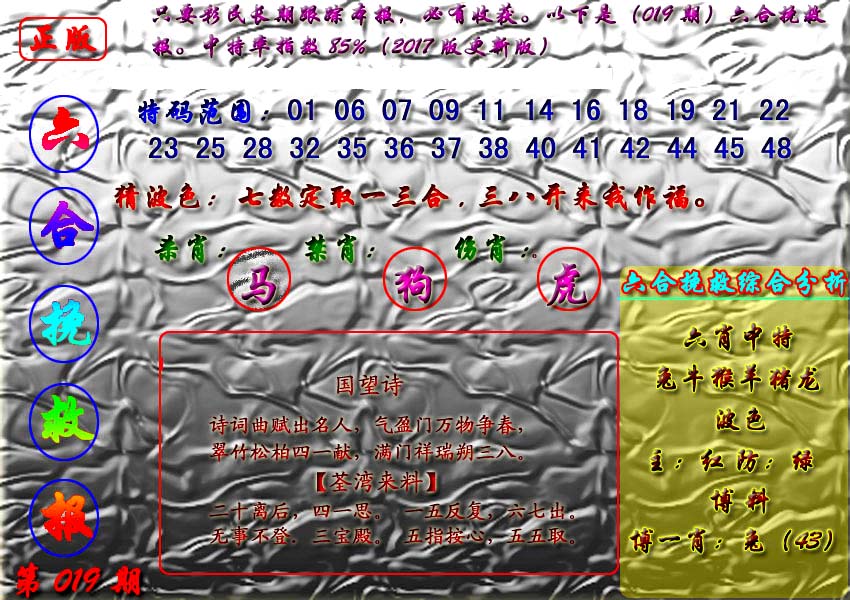 正版
只要彩民长期跟踪本报，必有收获。以下是（019期）六合挽救
报。中特率指数85%（2017版更新版）
六合挽救报
第019期
特码范围：01 06 07 09 11 14 16 18 19 21 22
23 25 28 32 35 36 37 38 40 41 42 44 45 48
猜波色：七数定取一三合，三八开来我作福。
杀肖：马 禁肖：狗 伤肖：虎
国望诗
诗词曲赋出名人，气盈门万物争春，
翠竹松柏四一献，满门祥瑞朔三八。
【荃湾来料】
二十离后，四一思。一五反复，六七出。
无事不登．三宝殿。五指按心，五五取。
六合挽救综合分析
六肖中特
兔牛猴羊猪龙
波色
主：红防：绿
博料
博一肖：兔（43）